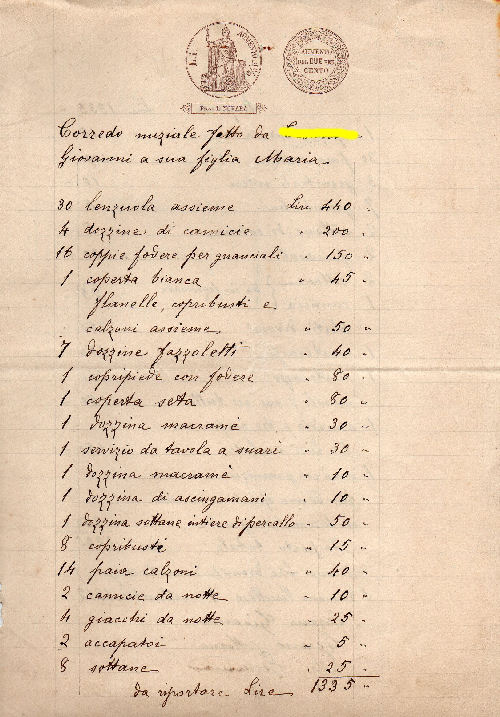 AUMENTO
DI DUE DEC.
CENTO
Corredo nuziale fatto da
Giovanni a sua figlia Maria
30 lenzuola assieme Lire 440 "
4 dozzine di camicie " 200 "
16 coppie fodere per guanciali 150 "
1 coperta bianca " 45 "
flanelle, copribusti e
calzoni assieme " 50 "
7 dozzine fazzoletti " 40 "
1 copripiede con fodere " 80 "
1 coperta seta " 80 "
1 dozzina macramè " 30 "
1 servizio da tavola a " 30 "
1 dozzina macramè " 10 "
1 dozzina di asciugamani " 10 "
1 dozzina sottane intiere di percallo " 50 "
8 copribusti " 15 "
14 paia calzoni " 40 "
2 camicie da notte " 10 "
4 giacchi da notte 25 "
2 accapatoi " 5 "
8 sottane " 25 "
da riportare Lire 1335 "